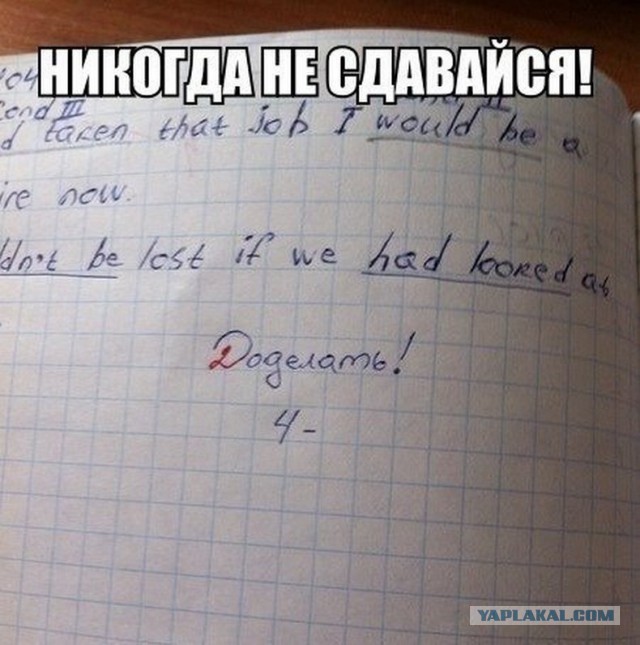 НИКОГДА НЕ СДАВАЙСЯ!
taken that job I would be a
now.
be lost if we had looked at
Доделать!
4-
YAPLAKAL.COM